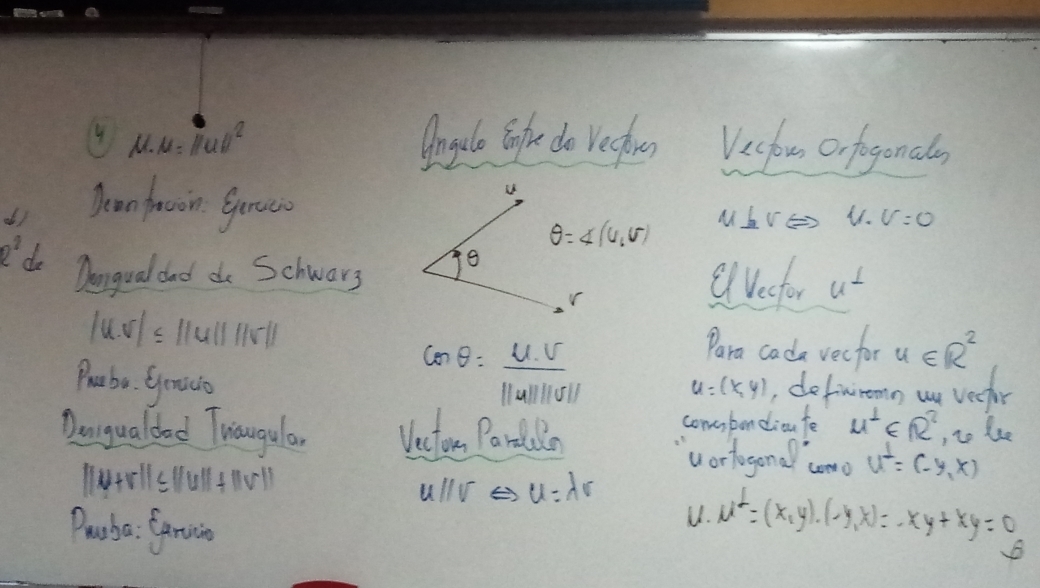 4) u.u = ||u||²
Demostración: Ejercicio
R² de
Desigualdad de Schwarz
|u.v| ≤ ||u|| ||v||
Prueba. Ejercicio
Desigualdad Triangular
||u+v|| ≤ ||u|| + ||v||
Prueba: Ejercicio
Angulo Entre dos Vectores
u
θ = ∢(u,v)
θ
v
Cos θ = u.v / ||u|| ||v||
Vectores Paralelos
u//v ⇔ u = λv
Vectores Ortogonales
u ⊥ v ⇔ u.v = 0
El Vector u⊥
Para cada vector u ∈ R²
u = (x,y), definiremos un vector
correspondiente u⊥ ∈ R², se lee
"u ortogonal" como u⊥ = (-y,x)
u.u⊥ = (x,y).(-y,x) = -xy + xy = 0